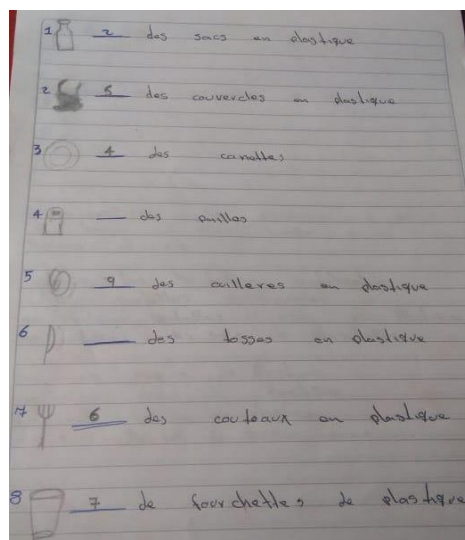 1 2 des sacs en plastique
2 5 des couvercles en plastique
3 4 des canettes
4 des pailles
5 9 des cuilleres en plastique
6 des tasses en plastique
7 6 des couteaux en plastique
8 7 de fourchettes de plastique